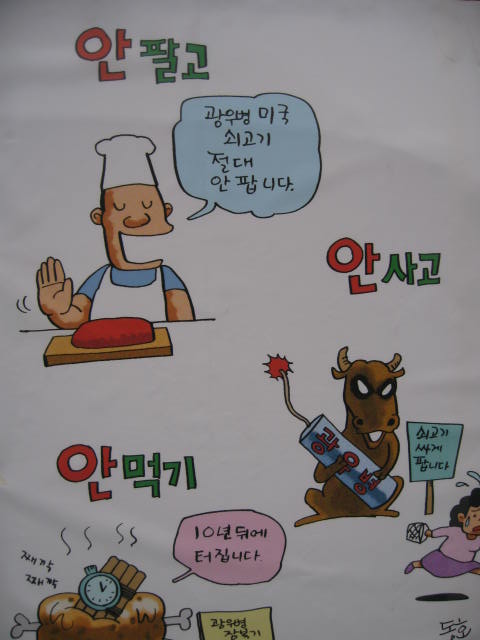 안 팔고
광우병 미국
쇠고기
절대
안 팝니다.
안 사고
광우병
쇠고기
싸게
팝니다
안 먹기
10년 뒤에
터집니다.
째깍
째깍
광우병
잠복기
동호